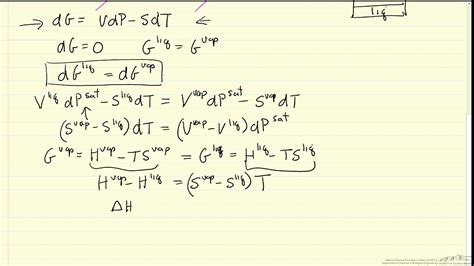 → dG = VdP - SdT ←
liq
dG = 0 G^liq = G^vap
dG^liq = dG^vap
V^liq dP^sat - S^liq dT = V^vap dP^sat - S^vap dT
(S^vap - S^liq)dT = (V^vap - V^liq)dP^sat
G^vap = H^vap - TS^vap = G^liq = H^liq - TS^liq
H^vap - H^liq = (S^vap - S^liq) T
ΔH